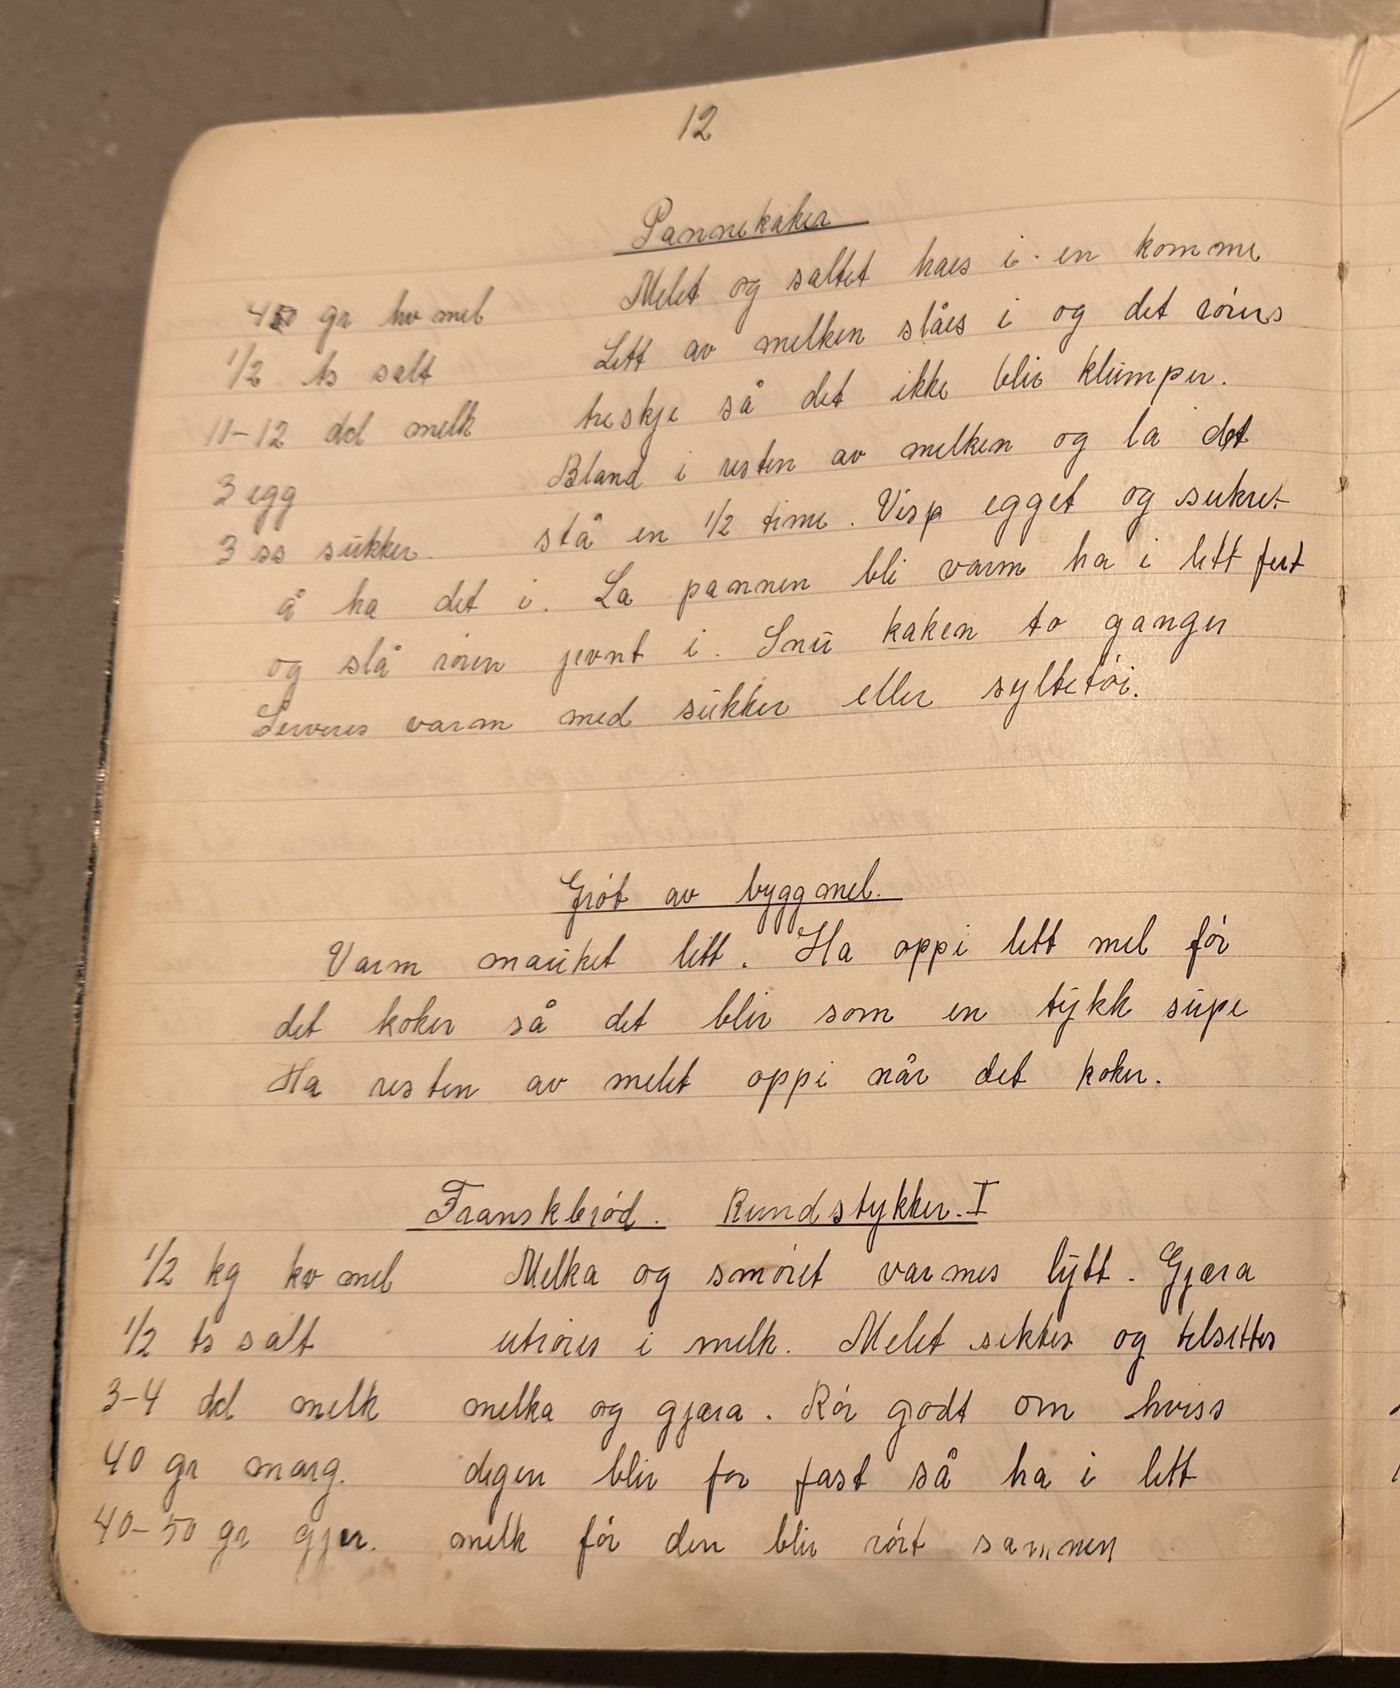 12
Pannekaker
450 gr hv mel Melet og saltet haes i en komme
1/2 ts salt Litt av melken slåes i og det røres
11-12 del melk treskje så det ikke blir klumper.
3 egg Bland i resten av melken og la det
3 ss sukker. stå en 1/2 time. Visp egget og sukret
å ha det i. La pannen bli varm ha i litt fett
og slå røren jevnt i. Snu kaken to ganger
Serveres varm med sukker eller syltetøi.
Grøt av byggmel.
Varm litt. Ha oppi litt mel før
det koker så det blir som en tykk supe
Ha resten av melet oppi når det koker.
Franskbrød. Rundstykker. I
1/2 kg hv mel Melka og smøret varmes lytt. Gjæra
1/2 ts salt utrøres i melk. Melet siktes og tilsettes
3-4 del melk melka og gjæra. Rør godt om hviss
40 gr marg. degen blir for fast så ha i litt
40-50 gr gjær. melk før den blir rørt sammen